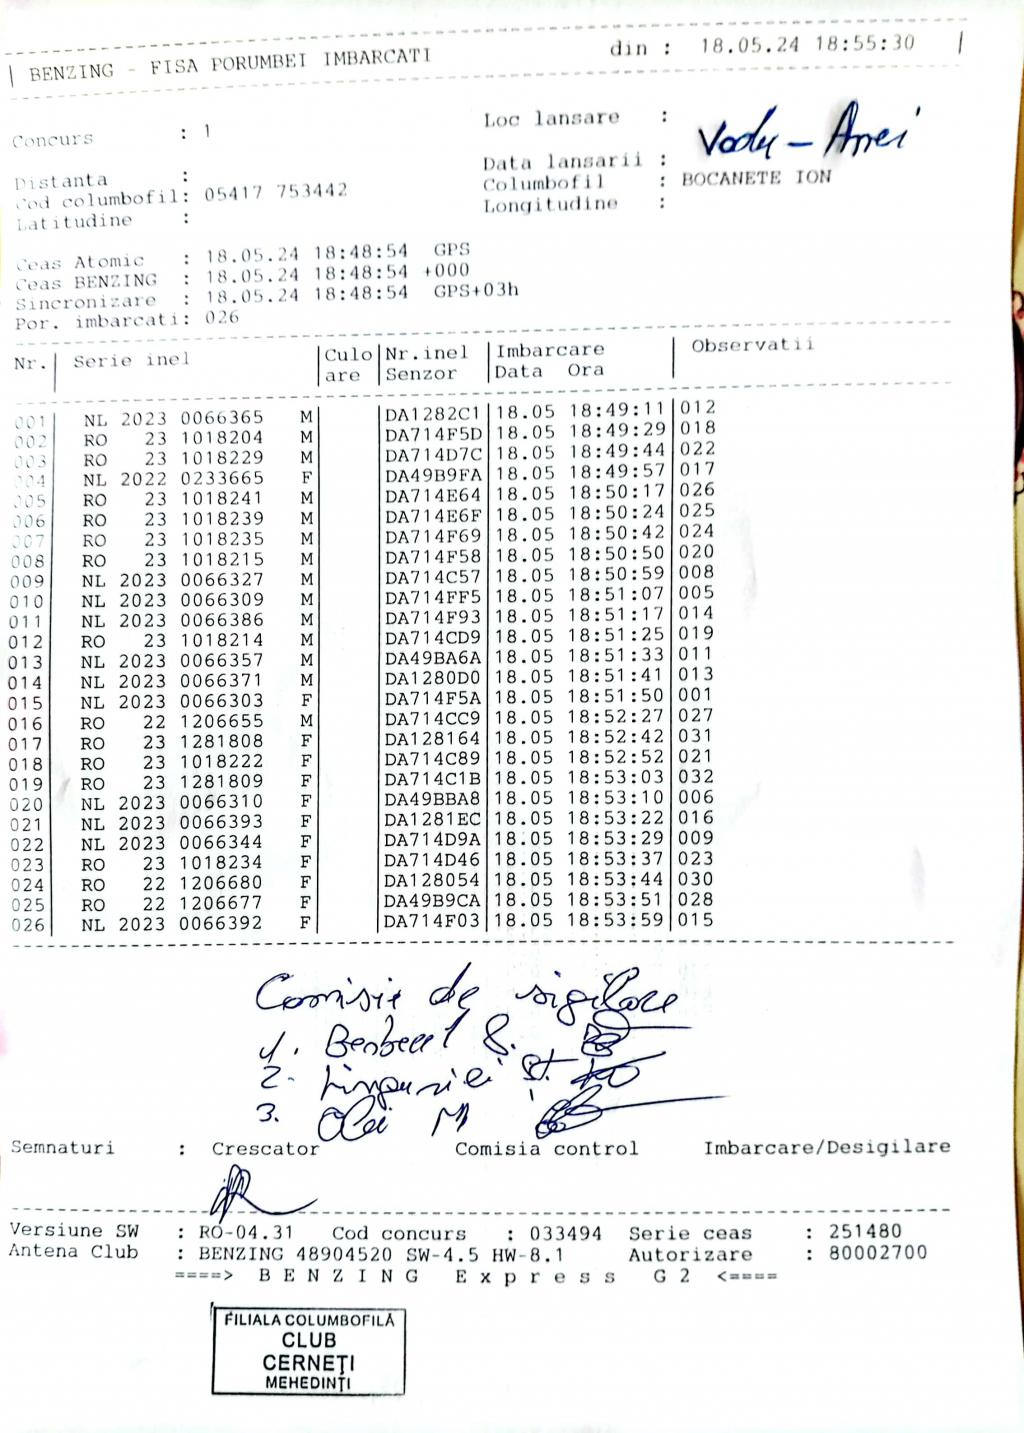 | BENZING - FISA PORUMBEI IMBARCATI din : 18.05.24 18:55:30 |
Concurs : 1 Loc lansare : Vodu - Anei
Data lansarii :
Distanta :
Cod columbofil: 05417 753442 Columbofil : BOCANETE ION
Latitudine : Longitudine :
Ceas Atomic : 18.05.24 18:48:54 GPS
Ceas BENZING : 18.05.24 18:48:54 +000
Sincronizare : 18.05.24 18:48:54 GPS+03h
Por. imbarcati: 026
Nr.| Serie inel |Culo|Nr.inel|Imbarcare | Observatii
| |are |Senzor |Data Ora |
001| NL 2023 0066365 M| |DA1282C1|18.05 18:49:11|012
002| RO 23 1018204 M| |DA714F5D|18.05 18:49:29|018
003| RO 23 1018229 M| |DA714D7C|18.05 18:49:44|022
004| NL 2022 0233665 F| |DA49B9FA|18.05 18:49:57|017
005| RO 23 1018241 M| |DA714E64|18.05 18:50:17|026
006| RO 23 1018239 M| |DA714E6F|18.05 18:50:24|025
007| RO 23 1018235 M| |DA714F69|18.05 18:50:42|024
008| RO 23 1018215 M| |DA714F58|18.05 18:50:50|020
009| NL 2023 0066327 M| |DA714C57|18.05 18:50:59|008
010| NL 2023 0066309 M| |DA714FF5|18.05 18:51:07|005
011| NL 2023 0066386 M| |DA714F93|18.05 18:51:17|014
012| RO 23 1018214 M| |DA714CD9|18.05 18:51:25|019
013| NL 2023 0066357 M| |DA49BA6A|18.05 18:51:33|011
014| NL 2023 0066371 M| |DA1280D0|18.05 18:51:41|013
015| NL 2023 0066303 F| |DA714F5A|18.05 18:51:50|001
016| RO 22 1206655 M| |DA714CC9|18.05 18:52:27|027
017| RO 23 1281808 F| |DA128164|18.05 18:52:42|031
018| RO 23 1018222 F| |DA714C89|18.05 18:52:52|021
019| RO 23 1281809 F| |DA714C1B|18.05 18:53:03|032
020| NL 2023 0066310 F| |DA49BBA8|18.05 18:53:10|006
021| NL 2023 0066393 F| |DA1281EC|18.05 18:53:22|016
022| NL 2023 0066344 F| |DA714D9A|18.05 18:53:29|009
023| RO 23 1018234 F| |DA714D46|18.05 18:53:37|023
024| RO 22 1206680 F| |DA128054|18.05 18:53:44|030
025| RO 22 1206677 F| |DA49B9CA|18.05 18:53:51|028
026| NL 2023 0066392 F| |DA714F03|18.05 18:53:59|015
Comisie de sigilare
1.
2.
3.
Semnaturi : Crescator Comisia control Imbarcare/Desigilare
Versiune SW : RO-04.31 Cod concurs : 033494 Serie ceas : 251480
Antena Club : BENZING 48904520 SW-4.5 HW-8.1 Autorizare : 80002700
====> B E N Z I N G E x p r e s s G 2 <====
FILIALA COLUMBOFILĂ
CLUB
CERNEȚI
MEHEDINȚI